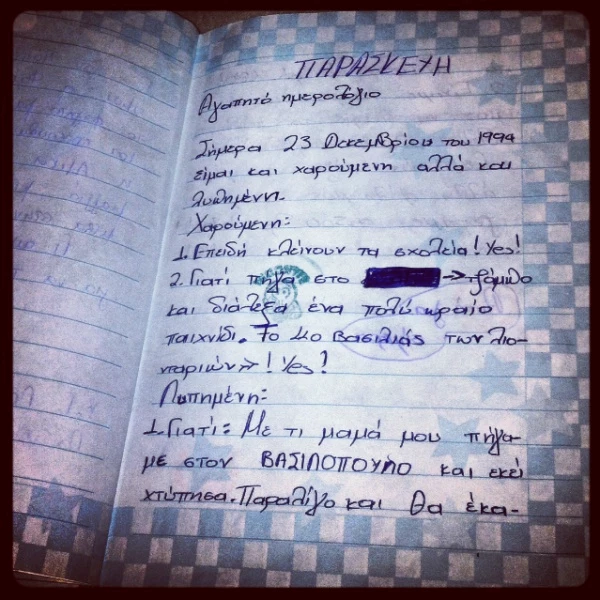 ΠΑΡΑΣΚΕΥΗ
Αγαπητό ημερολόγιο
Σήμερα 23 Δεκεμβρίου του 1994
είμαι και χαρούμενη αλλά και
λυπημένη.
Χαρούμενη:
1. Επειδή κλείνουν τα σχολεία! Yes!
2. Γιατί πήγα στο → τζάμπο
και διάλεξα ένα πολύ ωραίο
παιχνίδι. Το «ο Βασιλιάς των λιο-
νταριών»! Yes!
Λυπημένη:
1. Γιατί: Με τι μαμά μου πήγα-
με στον ΒΑΣΙΛΟΠΟΥΛΟ και εκεί
χτύπησα. Παραλίγο και θα έκα-